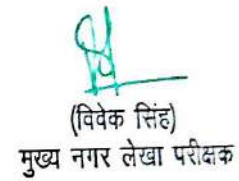 (विवेक सिंह)
मुख्य नगर लेखा परीक्षक